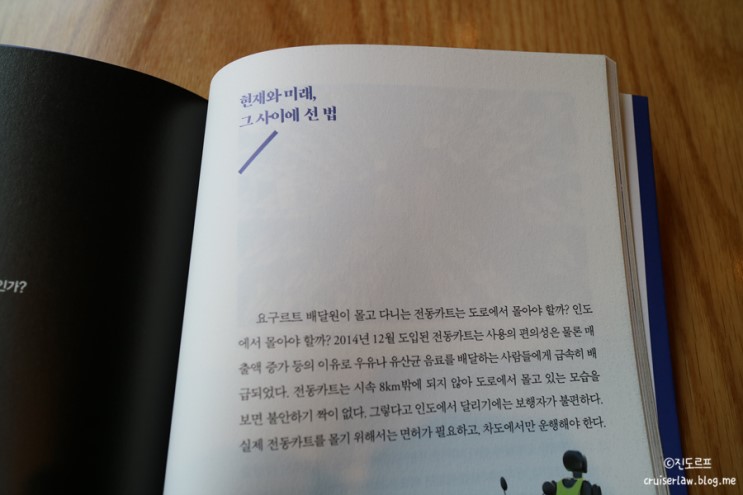 인가?
현재와 미래,
그 사이에 선 법
요구르트 배달원이 몰고 다니는 전동카트는 도로에서 몰아야 할까? 인도
에서 몰아야 할까? 2014년 12월 도입된 전동카트는 사용의 편의성은 물론 매
출액 증가 등의 이유로 우유나 유산균 음료를 배달하는 사람들에게 급속히 배
급되었다. 전동카트는 시속 8km밖에 되지 않아 도로에서 몰고 있는 모습을
보면 불안하기 짝이 없다. 그렇다고 인도에서 달리기에는 보행자가 불편하다.
실제 전동카트를 몰기 위해서는 면허가 필요하고, 차도에서만 운행해야 한다.
©진도르프
cruiserlaw.blog.me